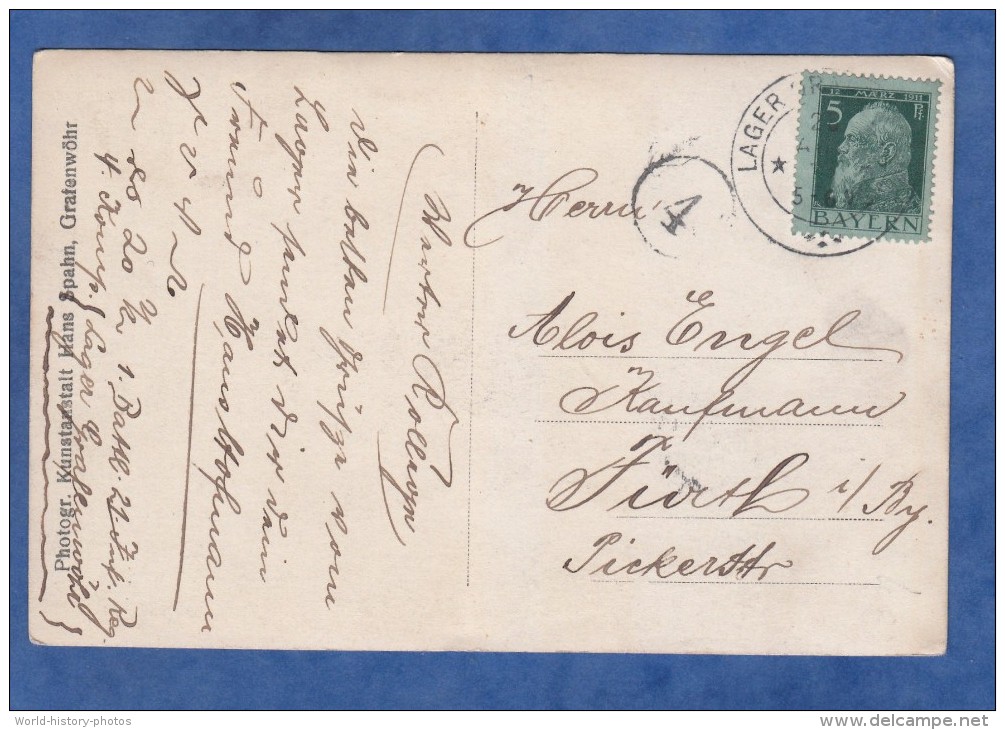 Werter Kollege
Die besten Grüße vom
Lager sendet Dir dein
Freund Hans Hofmann
4. Komp. Lager Grafenwöhr
1. Batl. 21. Inf. Reg.
Photogr. Kunstanstalt Hans Spahn, Grafenwöhr
LAGER GR
12. MÄRZ 1911
5 Pf
BAYERN
1
Herrn
Alois Engel
Kaufmann
Fürth i/By.
Pickertstr
World-history-photos
http://www.delcampe.net